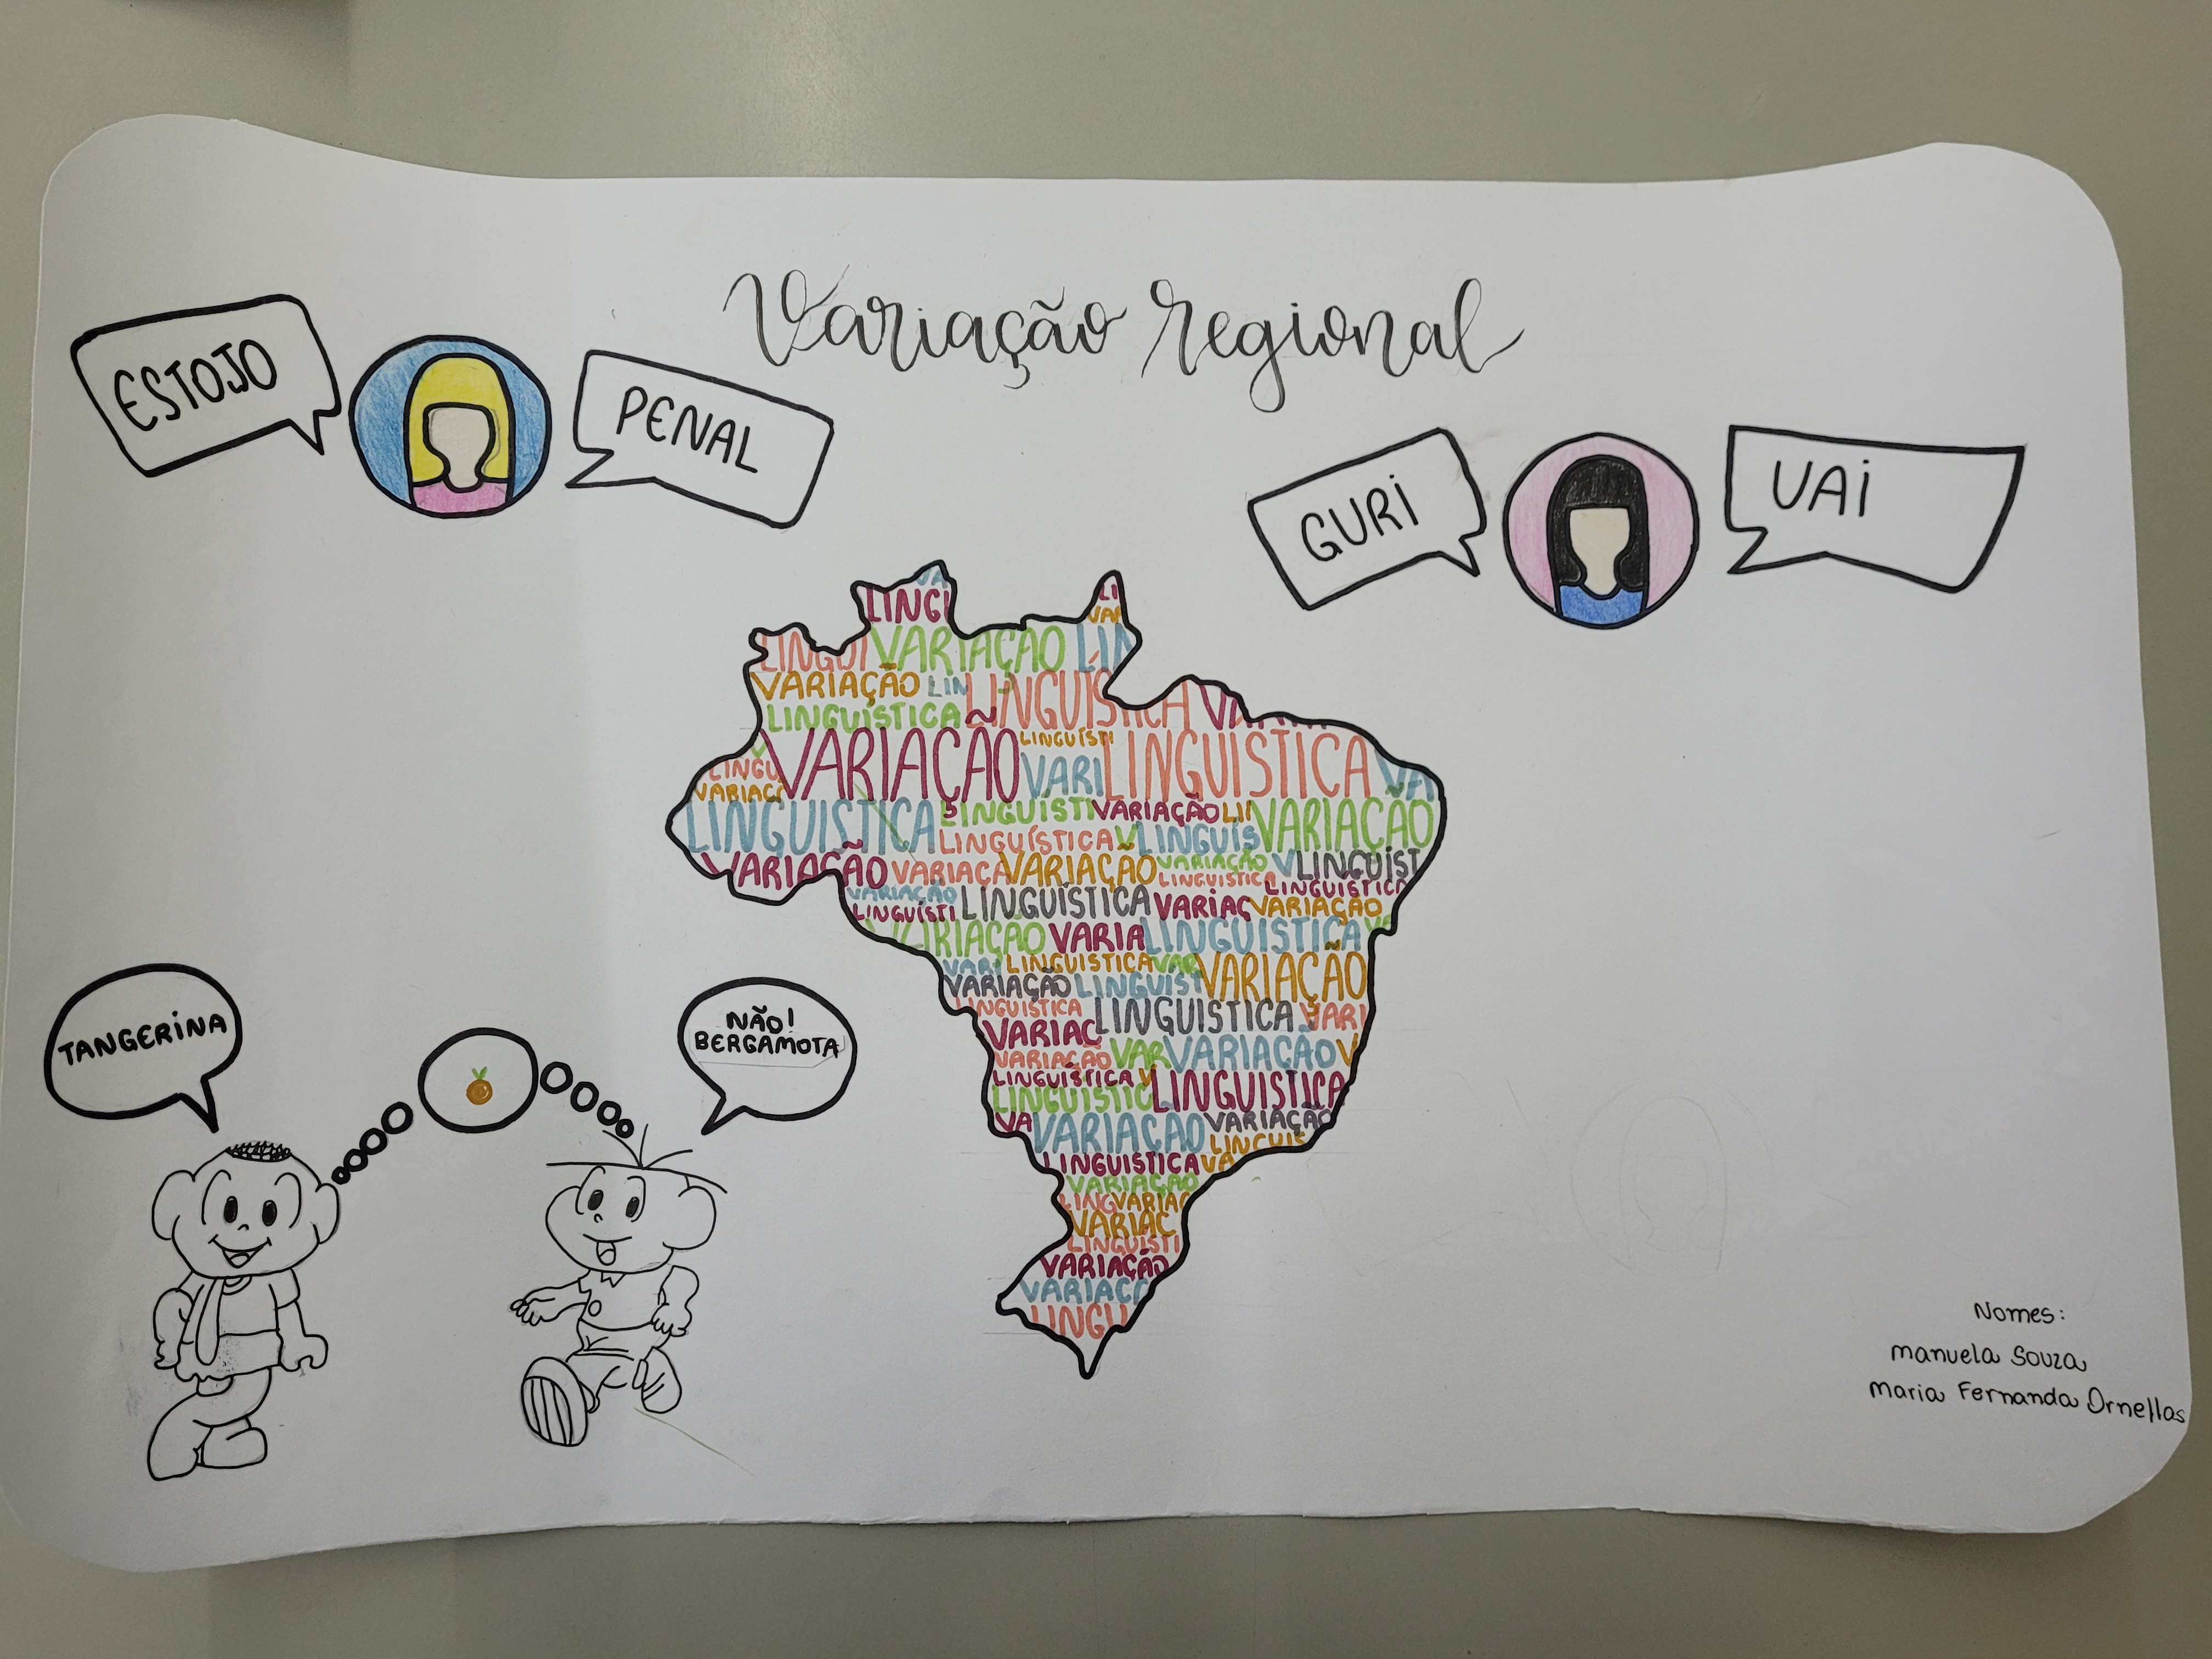 Variação regional
ESTOJO
PENAL
GURI
UAI
VA
LINGU
LI
VAR
LINGUI VARIAÇÃO LIN
VARIAÇÃO LIN LINGUÍSTICA
LINGUÍSTICA
VARIAÇÃO LINGUÍSTI LINGUISTICA VA
LINGU VARI
VARIAÇ
LINGUISTICA LINGUISTI VARIAÇÃO LIN VARIAÇÃO
LINGUÍSTICA V LINGUÍS
VARIAÇÃO VARIAÇÃ VARIAÇÃO VARIAÇÃO V LINGUIST
LINGUISTICA LINGUISTICA
VARIAÇÃO LINGUÍSTICA VARIAÇ VARIAÇÃO
LINGUÍSTI
VARIAÇÃO VARIA LINGUISTICA
VARI LINGUISTICA VAR VARIAÇÃO
VARIAÇÃO LINGUIST
LINGUISTICA LINGUISTICA VARI
VARIAC
VARIAÇÃO VAR VARIAÇÃO V
LINGUÍSTICA V LINGUISTICA
LINGUISTIC
VA VARIAÇÃO VARIAÇÃO
LINGUIS
LINGUISTICA VA
VARIAÇÃO
LING VARIAÇ
VARIAC
LINGUISTI
VARIAÇÃO
VARIAÇ
LINGU
TANGERINA
NÃO!
BERGAMOTA
Nomes:
Manuela Souza
Maria Fernanda Ornellas